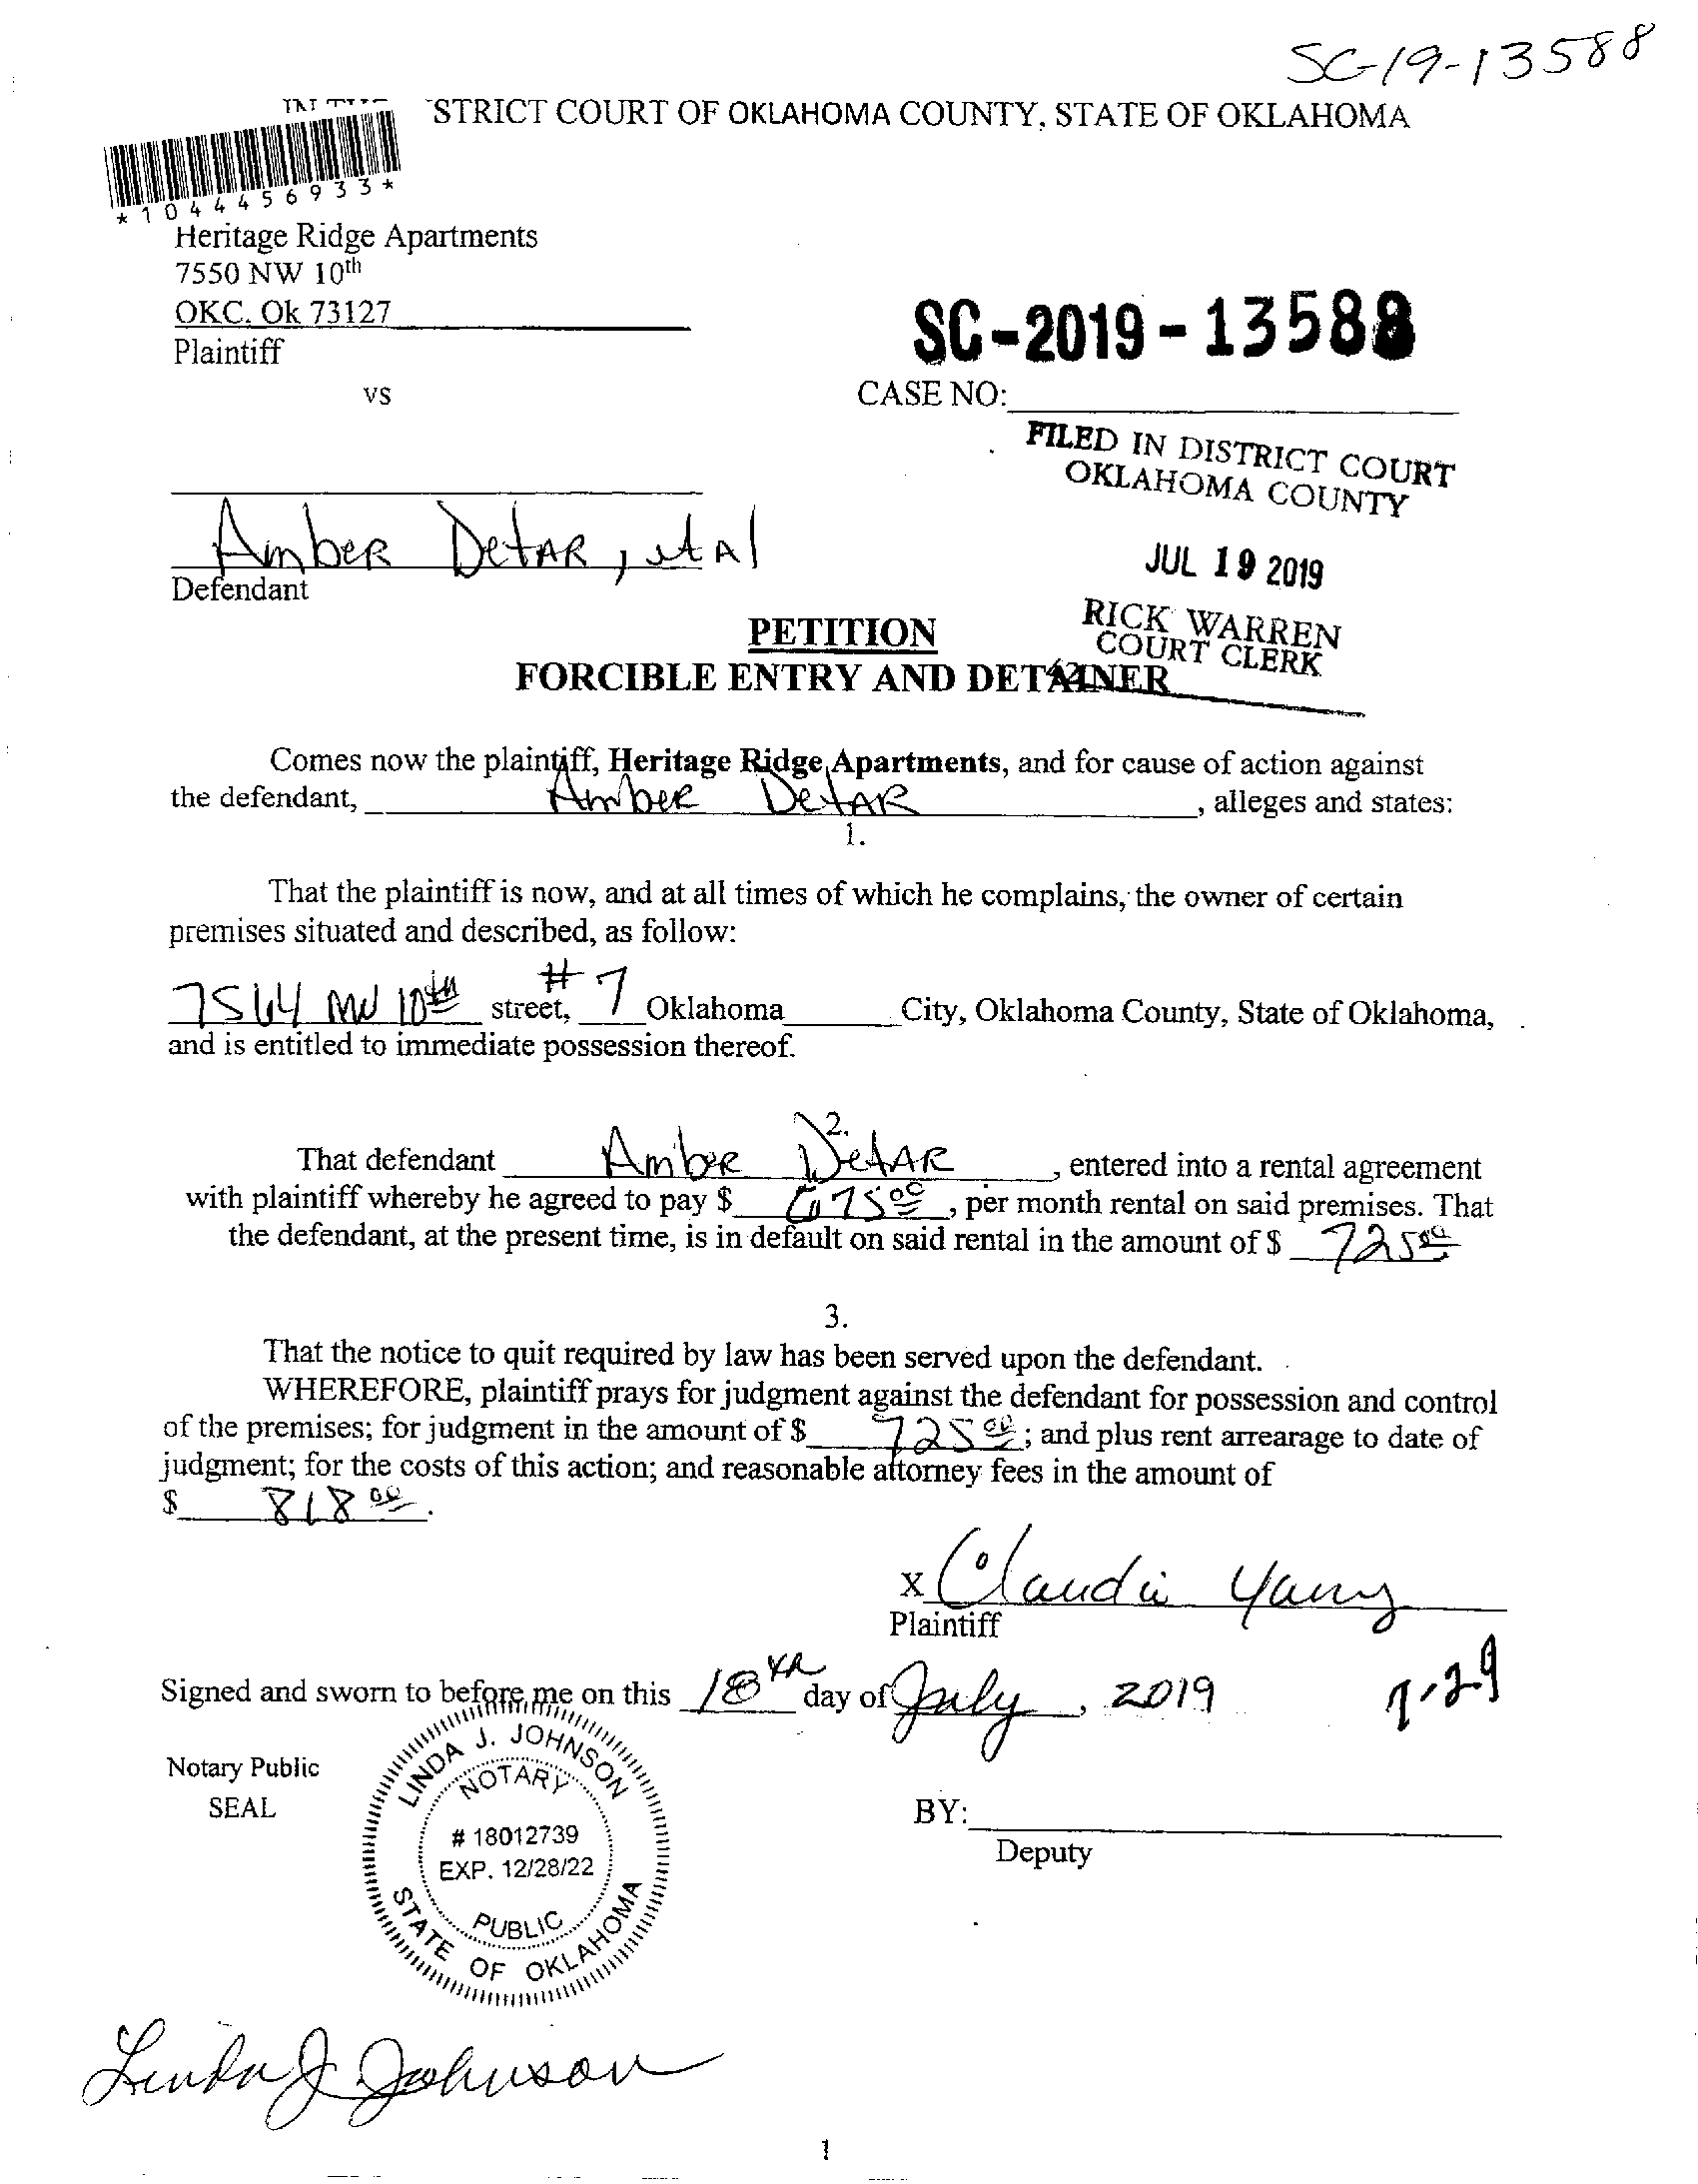 SC-19-13588
STRICT COURT OF OKLAHOMA COUNTY, STATE OF OKLAHOMA
*1044456933*
Heritage Ridge Apartments
7550 NW 10th
OKC. Ok 73127
Plaintiff
vs
SC-2019-13588
CASE NO:
FILED IN DISTRICT COURT
OKLAHOMA COUNTY
JUL 19 2019
RICK WARREN
COURT CLERK
Amber Detar, et Al
Defendant
PETITION
FORCIBLE ENTRY AND DETAINER
Comes now the plaintiff, Heritage Ridge Apartments, and for cause of action against
the defendant, Amber Detar, alleges and states:
1.
That the plaintiff is now, and at all times of which he complains, the owner of certain
premises situated and described, as follow:
NW 10th street, #7 Oklahoma City, Oklahoma County, State of Oklahoma,
and is entitled to immediate possession thereof.
2.
That defendant Amber Detar, entered into a rental agreement
with plaintiff whereby he agreed to pay $ 675.00, per month rental on said premises. That
the defendant, at the present time, is in default on said rental in the amount of $ 725.00
3.
That the notice to quit required by law has been served upon the defendant.
WHEREFORE, plaintiff prays for judgment against the defendant for possession and control
of the premises; for judgment in the amount of $ 725.00; and plus rent arrearage to date of
judgment; for the costs of this action; and reasonable attorney fees in the amount of
$ 818.00.
x Claudia
Plaintiff
Signed and sworn to before me on this 18th day of July, 2019
7-29
Notary Public
SEAL
LINDA J. JOHNSON
NOTARY
# 18012739
EXP. 12/28/22
PUBLIC
STATE OF OKLAHOMA
BY:
Deputy
Linda J Johnson
1